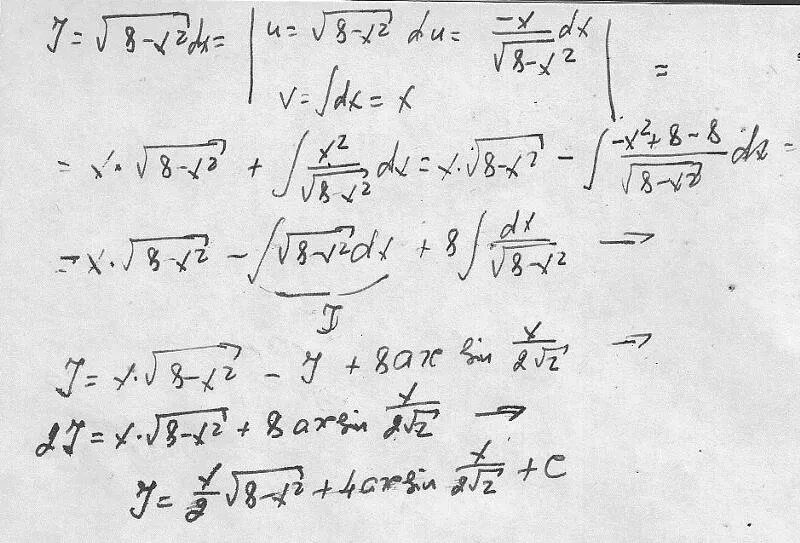 J = √(8-x²) dx = | u = √(8-x²) du = -x/√(8-x²) dx
v = ∫dx = x | =
= x·√(8-x²) + ∫ x²/√(8-x²) dx = x·√(8-x²) - ∫ (-x²+8-8)/√(8-x²) dx =
= x·√(8-x²) - ∫√(8-x²) dx + 8∫ dx/√(8-x²) →
J
J = x·√(8-x²) - J + 8 arc sin x/(2√2) →
2J = x·√(8-x²) + 8 arcsin x/(2√2) →
J = x/2 √(8-x²) + 4 arcsin x/(2√2) + C